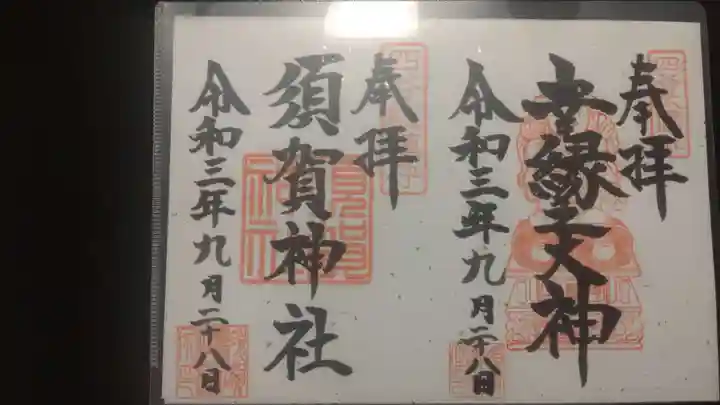 奉拝
縁天神
令和三年九月二十八日
奉拝
須賀神社
令和三年九月二十八日